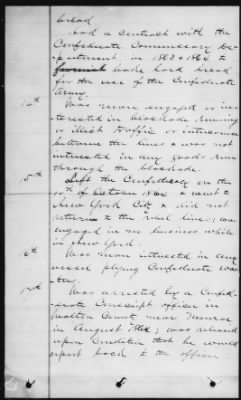 bread
Had a contract with the
Confederate Commissary De-
-partment in 1863 & 1864 to
furnish bake hard bread
for the use of the Confederate
Army.
14th Was never engaged or in-
terested in blockade running
or illicit traffic or intercourse
between the lines & was not
interested in any goods run
through the blockade.
15th Left the Confederacy on the
of October 1864 & went to
New York City & did not
return to the Rebel lines; was
engaged in no business while
in New York.
16th Was never interested in any
vessel plying Confederate wa-
ters.
17th Was arrested by a Confed-
erate Conscript officer in
Walton County near Monroe
in August 1864; was released
upon Condition that he would
report back to the officer